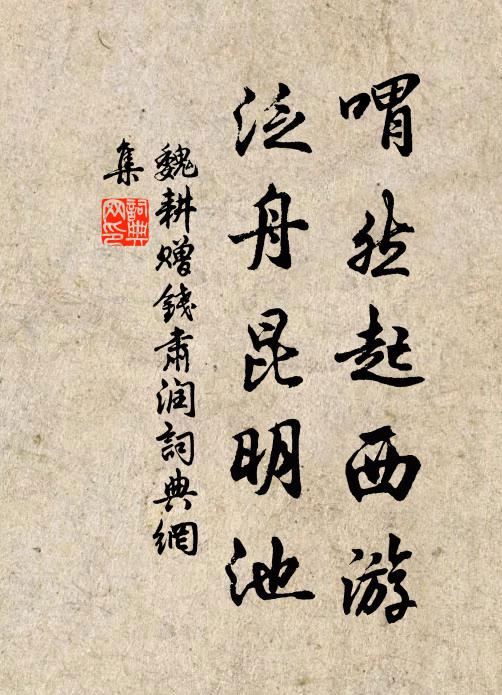 喟然起西游
泛舟昆明池
魏耕赠錢肅润詞典網
集
詞典網印